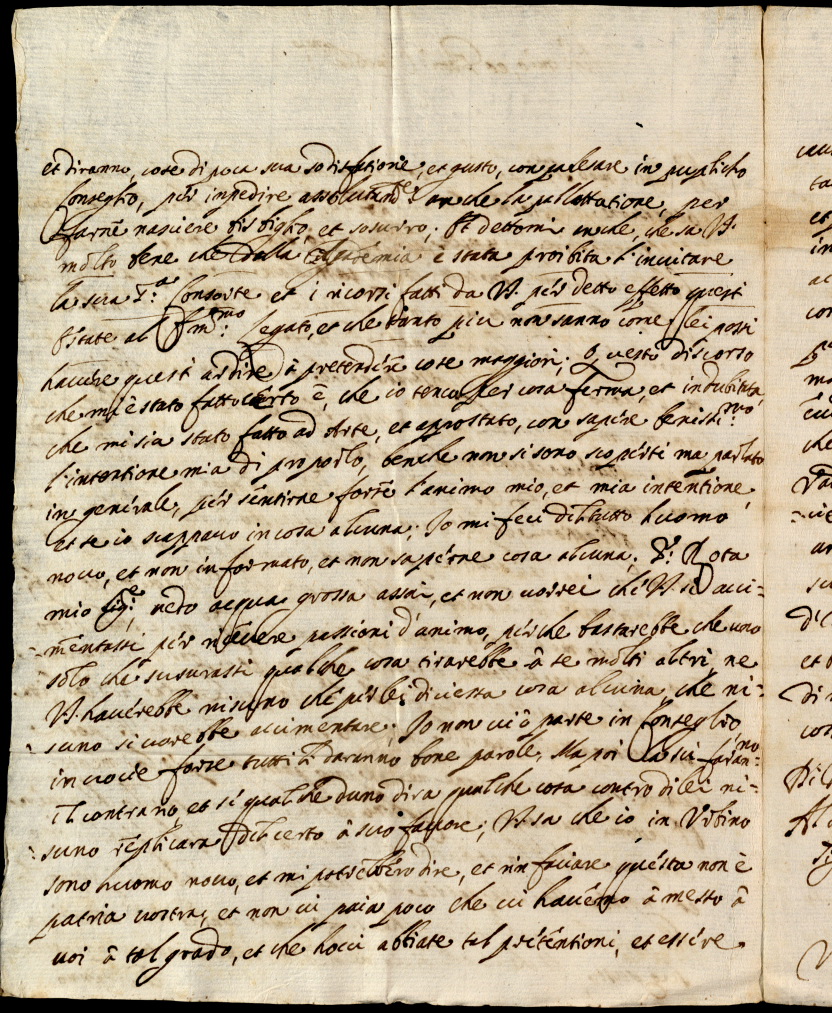 et diranno, cose di poca sua sodisfatione, et gusto, con palesare in puplicho
Conseglio, per impedire assolutam.te anche la pallottatione, per
farne nasciere bisbiglio, et sosurro; Et dettomi anche, che sa V.S.
molto bene che dalla è stata proibita l'inuitare
la sua S.ra Consorte et i ricorsi fatti da V.S. per detto effetto quest
Estate al Em.mo Legato, et che tanto piu non sanno come lei possi
hauere quest ardire à pretendere cose maggiori; Questo discorso
che mi è stato fatto certo è, che io tenco per cosa ferma, et indubitata,
che mi sia stato fatto ad Arte, et appostato, con sapere benissi.mo
l'intentione mia di proporlo, benche non si sono scoperti ma parlato
in generale, per sentirne forse l'animo mio, et mia intentione,
et se io scappauo in cosa alcuna; Io mi feci del tutto huomo
nouo, et non informato, et non saperne cosa alcuna. S.r Rota
mio Sig.re uedo acqua grossa assai, et non uorrei che V.S. si acci=
mentassi per riceuere passioni d'animo, perche bastarebbe che uno
solo che susurassi qualche cosa tirarebbe à se molti altri, ne
V.S. hauerebbe nisuno che per lei dicessa cosa alcuna, che ni=
suno si uorebbe accimentare; Io non ui ò parte in Conseglio
in uocie forse tutti li daranno bone parole, Ma poi la sù faran=no
il contrario, et se qualcheduno dira qualche cosa contro di lei ni=
suno replicara del certo à suo fauore; V.S. sa che io in Vrbino
sono huomo nouo, et mi potrebbero dire, et rinfaciare questa non è
patria uostra, et non ui paia poco che ui hauemo à messo à
uoi à tal grado, et che hocci abbiate tal pretentioni, et essere